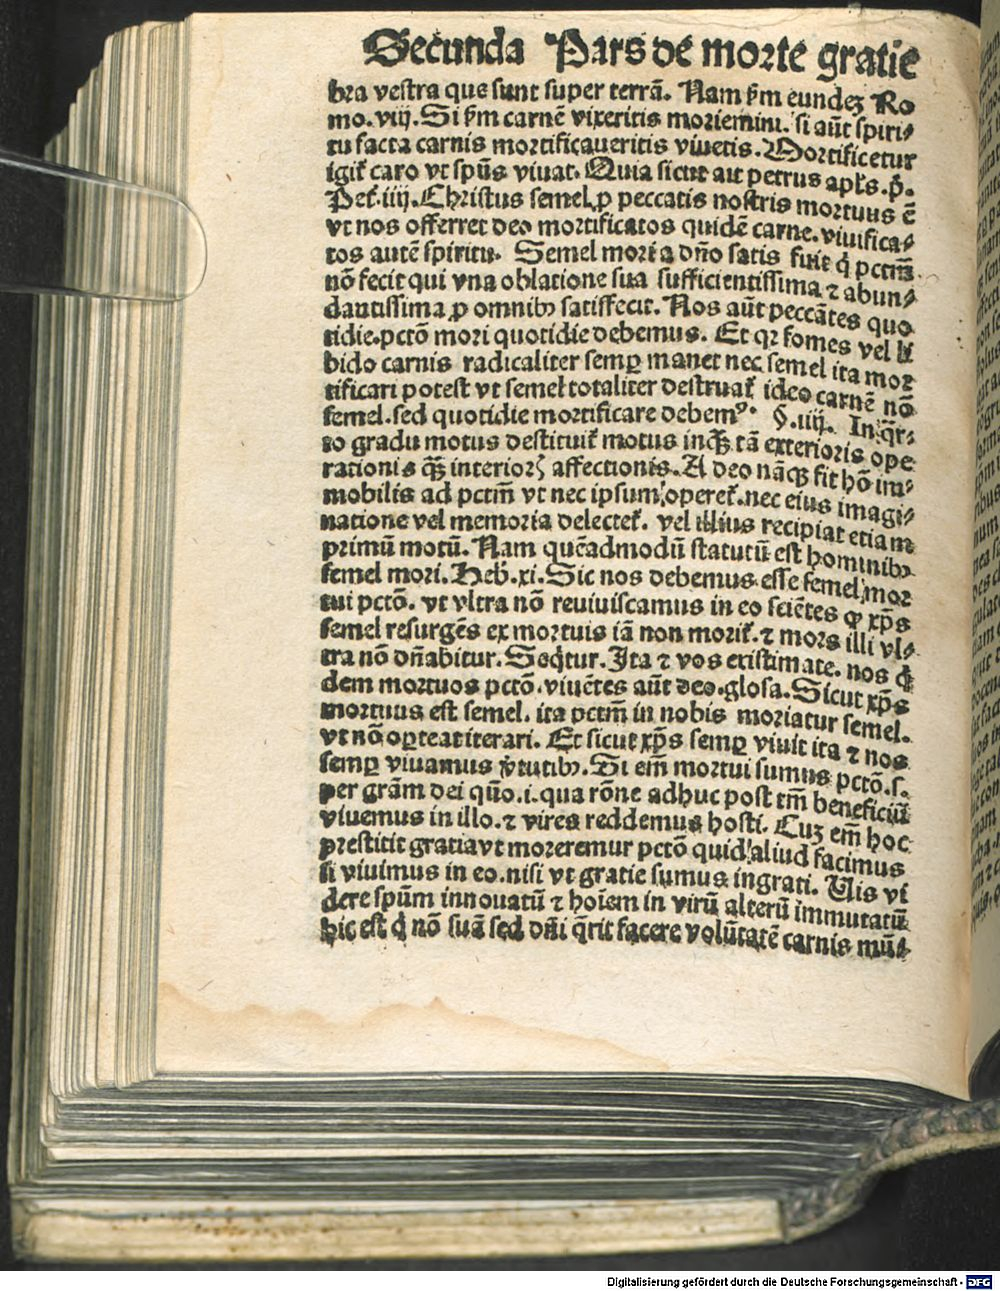 Secunda Pars de morte gratie
bra vestra que sunt super terrā. Nam ẜm eundeȝ Ro
mo. viij. Si ẜm carnē vixeritis moriemini. si aūt spiri⸗
tu facta carnis mortificaueritis viuetis. Mortificetur
igit̃ caro vt spūs viuat. Quia sicut ait petrus apl̃s. p̄.
Pet̃. iiij. Christus semel ꝓ peccatis nostris mortuus ē
vt nos offerret deo mortificatos quidē carne. viuifica⸗
tos autē spiritu. Semel mori a dño satis fuit q̇ pctm̄
nō fecit qui vna oblatione sua sufficientissima ⁊ abun⸗
dantissima ꝓ omnibꝰ satisfecit. Nos aūt peccātes quo
tidie. pctō mori quotidie debemus. Et qꝛ fomes vel li
bido carnis radicaliter semꝑ manet nec semel ita mor
tificari potest vt semel totaliter destruat̃ ideo carnē nō
semel. sed quotidie mortificare debemꝰ. §. iiij. In q̄r⸗
to gradu motus destituit̃ motus inqꝫ tā exterioris ope
rationis qꝫ interioꝝ affectionis. A deo nāqꝫ fit hō im⸗
mobilis ad pctm̄ vt nec ipsum operet̃. nec eius imagi⸗
natione vel memoria delectet̃. vel illius recipiat etiam
primū motū. Nam quēadmodū statutū est hominibꝰ
semel mori. Heb̃. xi. Sic nos debemus esse semel mor
tui pctō. vt vltra nō reuiuiscamus in eo sciētes ꝙ xp̄s
semel resurgēs ex mortuis iā non morit̃. ⁊ mors illi vl⸗
tra nō dñabitur. Seq̇tur. Ita ⁊ vos existimate. nos q̇
dem mortuos pctō. viuētes aūt deo. glosa. Sicut xp̄s
mortuus est semel. ita pctm̄ in nobis moriatur semel.
vt nō oꝑteat iterari. Et sicut xp̄s semꝑ viuit ita ⁊ nos
semꝑ viuamus v̓tutibꝰ. Si em̄ mortui sumus pctō. s.
per grām dei quō. i. qua rōne adhuc post tm̄ beneficiū
viuemus in illo. ⁊ vires reddemus hosti. Cuȝ em̄ hoc
prestitit gratia vt moreremur pctō quid aliud facimus
si viuimus in eo. nisi vt gratie sumus ingrati. Uis vi
dere spūm innouatū ⁊ hoīem in virū alterū immutatū
hic est q̇ nō suā sed dñi q̄rit facere volūtatē carnis mū⸗
Digitalisierung gefördert durch die Deutsche Forschungsgemeinschaft - DFG